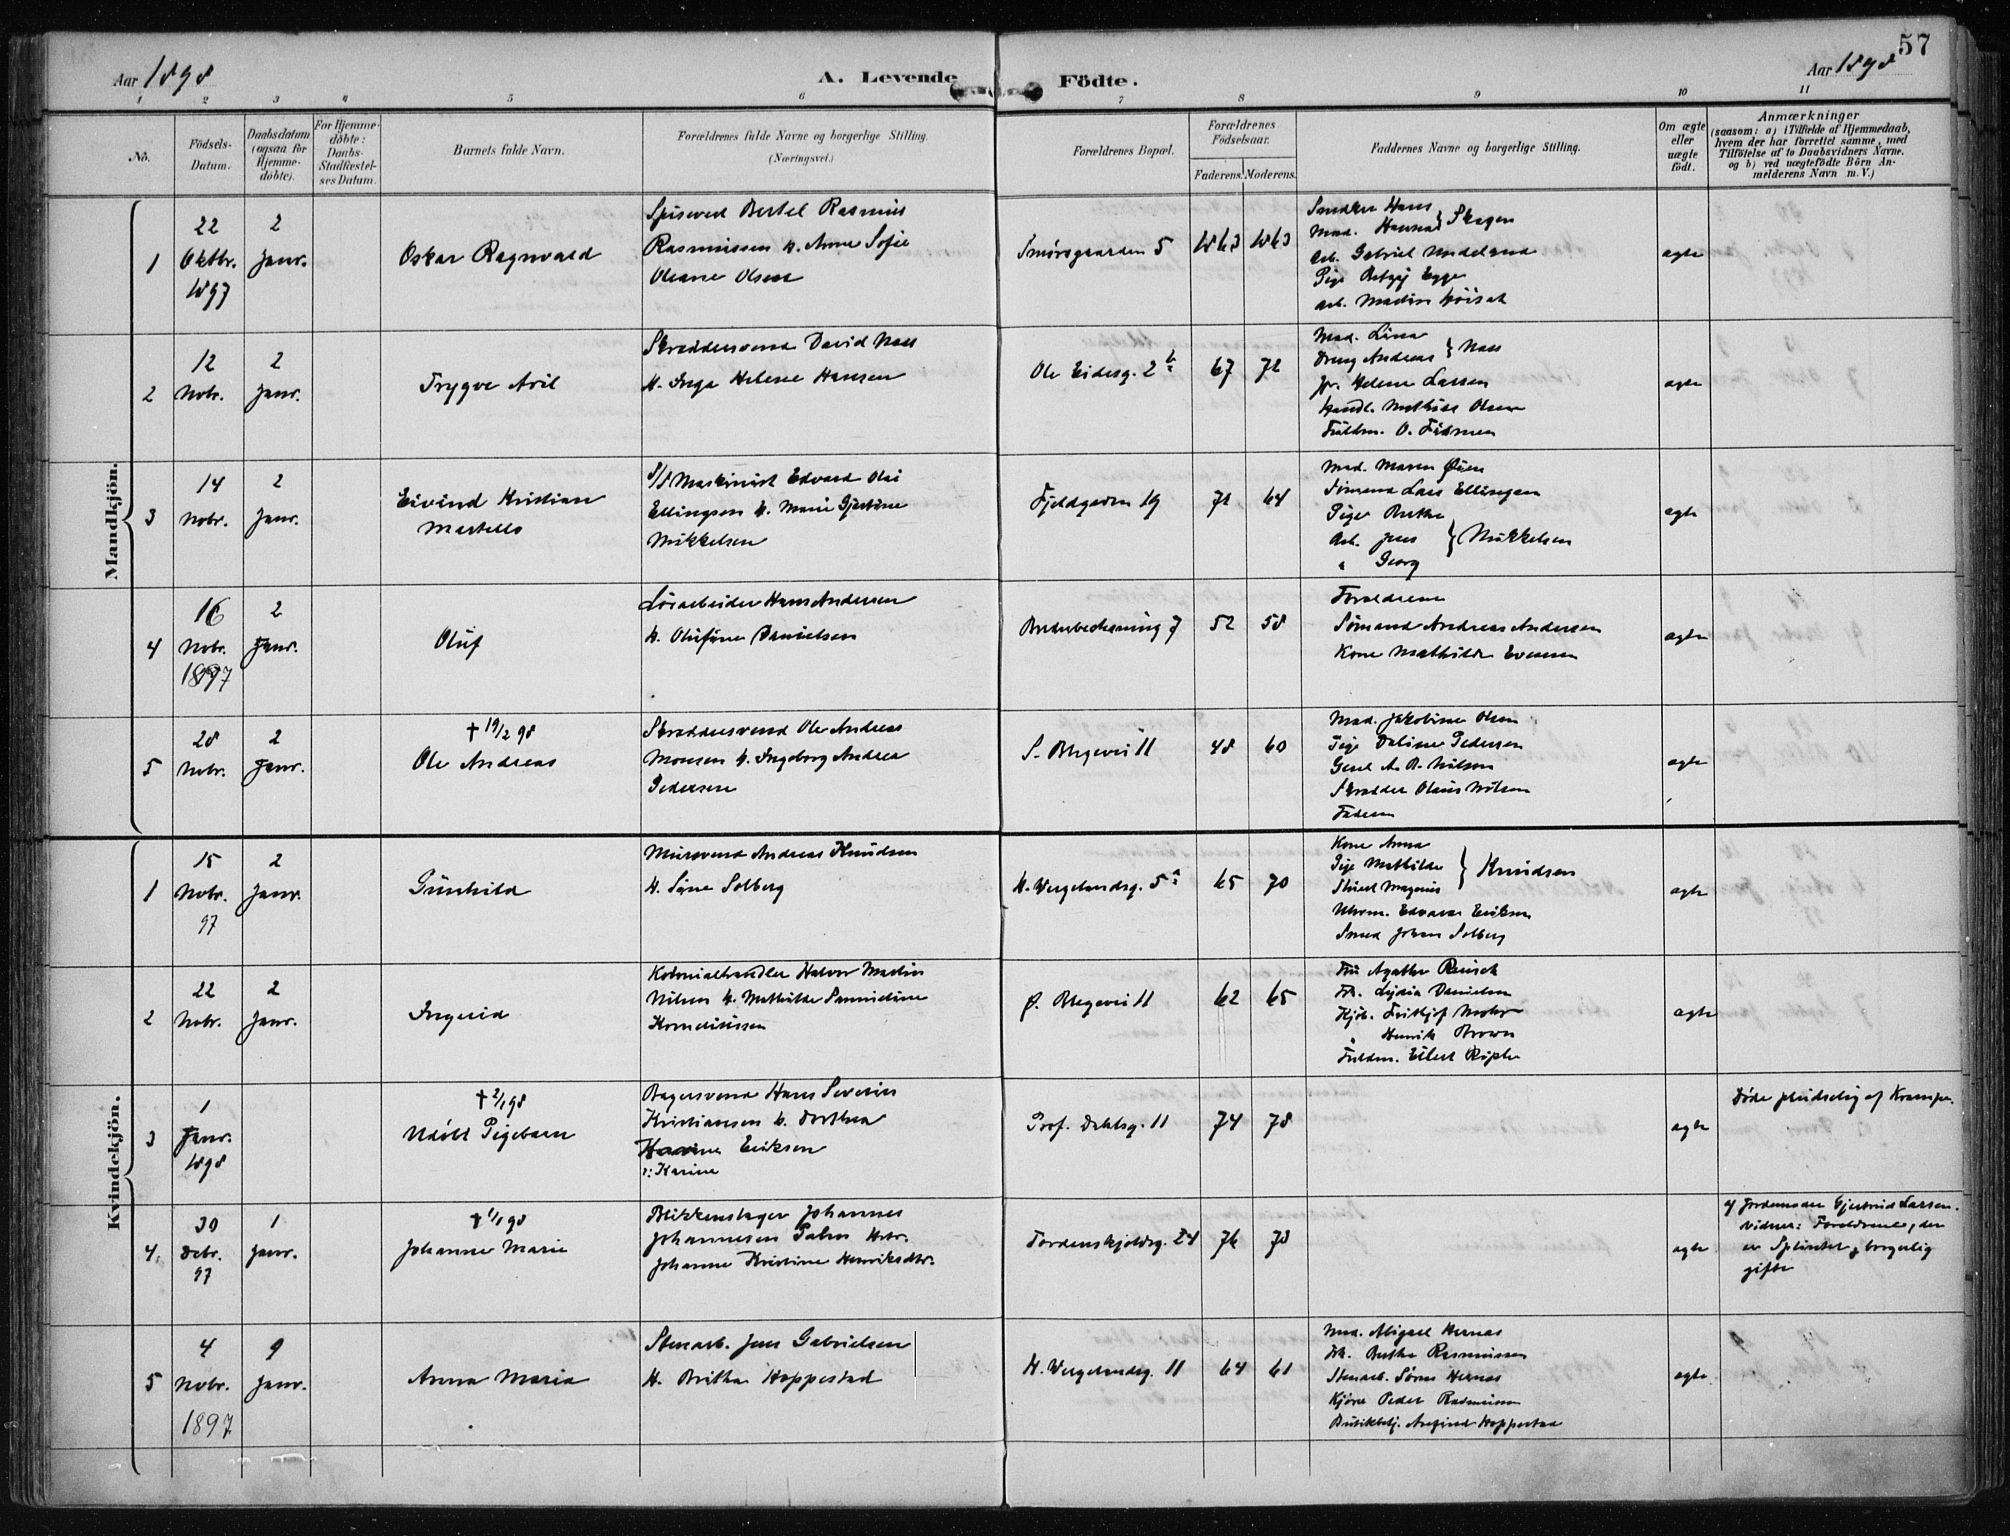 57
Aar 1898
A. Levende Födte.
Aar 1898
1 2 3 4 5 6 7 8 9 10 11
No.
Födsels-
Datum.
Daabsdatum
(ogsaa for
Hjemme-
döbte).
For Hjemme-
döbte:
Daabs-
Stadfæstel-
ses Datum.
Barnets fulde Navn.
Forældrenes fulde Navne og borgerlige Stilling.
(Næringsvei.)
Forældrenes Bopæl.
Forældrenes
Födselsaar.
Faderens. Moderens.
Faddernes Navne og borgerlige Stilling.
Om ægte
eller
uægte
født.
Anmærkninger
(saasom: a) i Tilfælde af Hjemmedaab,
hvem der har forrettet samme, med
Tilföielse af to Daabsvidners Navne.
og b) ved uægtefödte Börn An-
melderens Navn m. V.)
Mandkjön.
1
22
Oktbr.
1897
2
Janr.
Oskar Ragnvald
Bertel Rasmus
Rasmussen h. Anne Sofie
Oleane Olsen
Smörsgaarden 5
1863 1863
Snedker Hans
Mad. Hanna } Skagen
Arb. Gabriel
Pige Betzy Egge
Arb. Martin
ægte
2
12
Nobr.
2
Janr.
Trygve Aril
Skræddersvend David Næss
H. Inga Helene Hansen
Ole Eidesg. 2 b
67 72
Mad. Lina
Dreng Andreas } Næss
Helene Larsen
Handl. Mathias Olsen
Fuldm. O.
ægte
3
14
Nobr.
2
Janr.
Eivind Kristian
Martells
S/S Maskinist Edvard Olai
Ellingsen h. Marie Gjertine
Mikkelsen
Fjeldgaden 19
71 64
Mad. Maren Öien
Sömand Lars Ellingsen
Pige Berthe
Arb. Jens } Mikkelsen
" Georg
ægte
4
16
Nobr.
1897
2
Janr.
Oluf
Lösarbeider Hans Andersen
h. Olufine Danielsen
7
52 58
Forældrene
Sömand Andreas Andersen
Kone Mathilde Evensen
ægte
5
28
Nobr.
2
Janr.
† 19/2 98
Ole Andreas
Skræddersvend Ole Andreas
Monsen h. Ingeborg Andrea
Pedersen
S. Blegevei 11
48 60
Mad. Jakobine Olsen
Pige Daline Pedersen
A. B. Nilsen
Skrædder Olaus Nilsen
Faderen
ægte
Kvindekjön.
1
15
Nobr.
97
2
Janr.
Gunhild
Mursvend Andreas Knudsen
H. Sine Solberg
H. Wergelandsg. 5 a
65 70
Kone Anna
Pige Mathilde
Magnus } Knudsen
Uhrm. Edvard Eriksen
Smed Johan Solberg
ægte
2
22
Nobr.
2
Janr.
Ingerid
Kolonialhandler Halvor Martin
Nilsen h. Mathilde
Korneliussen
Ø. Blegevei 11
62 65
Fru Agathe Reusch
Frk. Lydia Danielsen
Kjöb. Fritjof Mohr
" Henrik Brown
Fuldm. Eilert
ægte
3
1
Janr.
1898
† 2/1 98
Udöbt Pigebarn
Bagersvend Hans Severin
Kristiansen h. Dorthea
Eriksen
o: Karine
Prof. Dahlsg. 11
74 78
ægte
Döde pludselig af Krampe.
4.
30
Decbr.
97
1
Janr.
† 1/1 98
Johanne Marie
Blikkenslager Johannes
Johannesen Palm
Johanne Kristine Henriksdtr.
Tordenskjoldsg. 24
76 78
ægte
af Jordemoder Gjertrud Larsen.
vidner: Forældrene, der
er borgerlig
gifte
5
4
Nobr.
1897
9
Janr.
Anna Maria
Stenarb. Jens Gabrielsen
H. Britha Hoppestad
H. Wergelandsg. 11
64 61
Mad. Abigael Hernæs
Frk. Berthe Rasmussen
Stenarb. Sören Hernæs
Peder Rasmussen
Butikbetj. Hoppestad
ægte